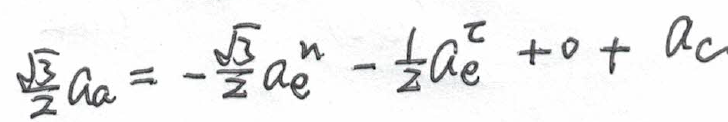 $\frac{\sqrt{3}}{2} a_a = -\frac{\sqrt{3}}{2} a_e^n - \frac{1}{2} a_e^\tau + 0 + a_c$